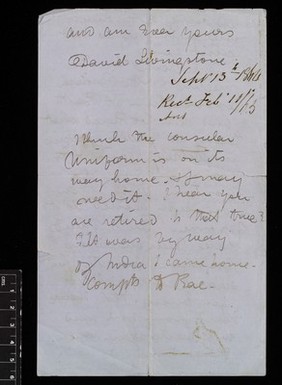 and am Ever yours
David Livingstone
Sept 13th 1864
Recd Feb 11/65
Ans
Which the consular
uniform is on its
way home. I may
need it. I hear you
are retired is that true?
It was by way
of India I came home.
Compts D Rae.
1
2
3
4
5
6